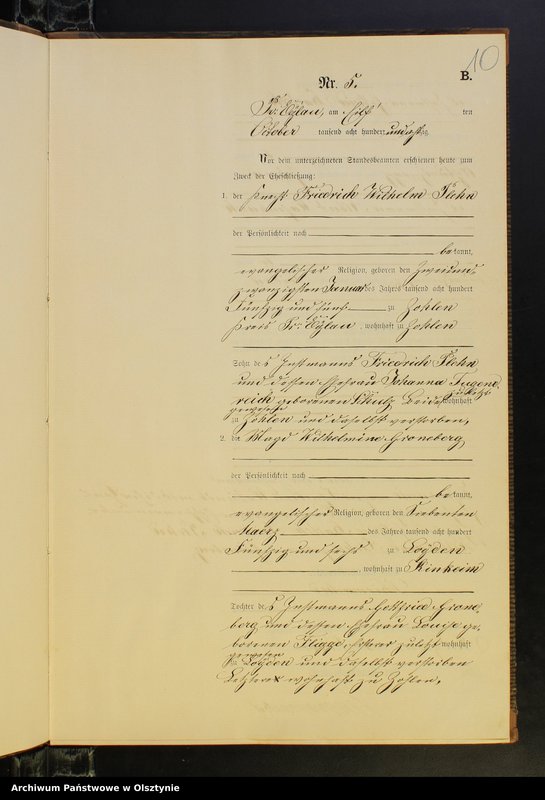 10
B.
Nr. 5.
Pr: Eylau, am Elf ten
October tausend acht hundert und achtzig
Vor dem unterzeichneten Standesbeamten erschienen heute zum
Zweck der Eheschließung:
1. der Knecht Friedrich Wilhelm Plehn
der Persönlichkeit nach
be kannt,
evangelischer Religion, geboren den Zweiund
zwanzigsten Januar des Jahres tausend acht hundert
Fünfzig und fünf zu Zohlen
Kreis Pr: Eylau, wohnhaft zu Zohlen
Sohn des Instmanns Friedrich Plehn
und dessen Ehefrau Johanna Tugend
reich geborenen Schulz Beide zuletzt wohnhaft
gewesen
zu Zohlen und daselbst verstorben,
2. die Magd Wilhelmine Groneberg
der Persönlichkeit nach
be kannt,
evangelischer Religion, geboren den Siebenten
Maerz des Jahres tausend acht hundert
Fünfzig und sechs zu Loyden
, wohnhaft zu Rinheim
Tochter des Instmanns Gottfried Grone
berg und dessen Ehefrau Louise ge
borenen Fligge, Ersterer zuletzt wohnhaft
gewesen
zu Loyden und daselbst verstorben
Letztere wohnhaft zu Zohlen.
Archiwum Państwowe w Olsztynie